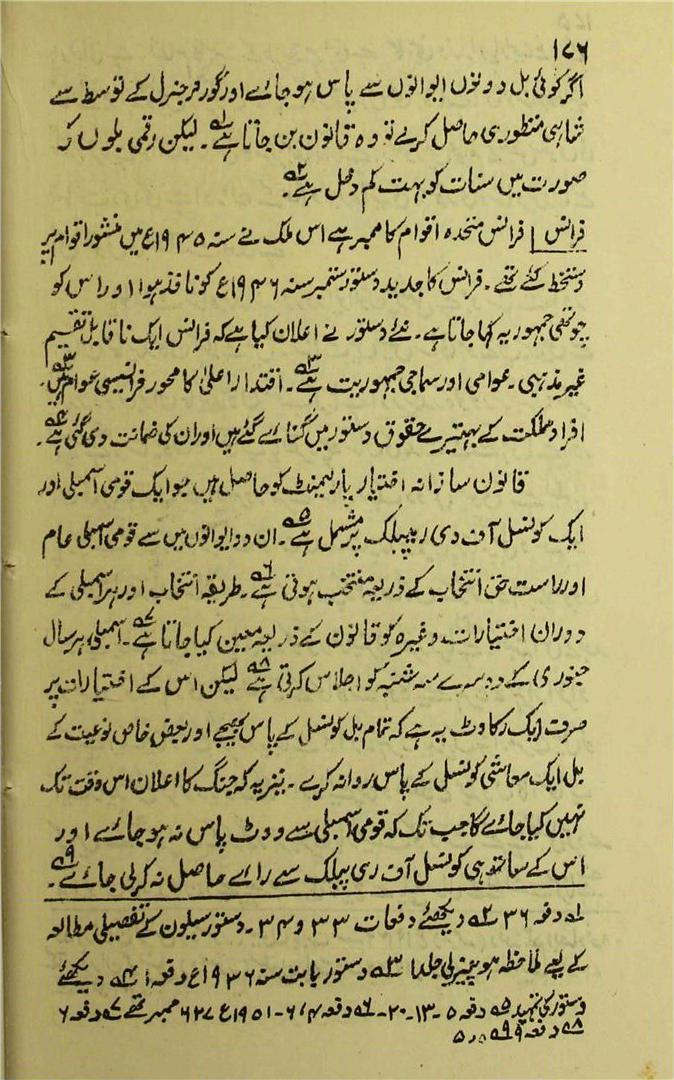 ۱۷۶
اگر کوئی بل دونوں ایوانوں سے پاس ہو جائے اور گورنر جنرل کے توسط سے
شاہی منظوری حاصل کرلے تو وہ قانون بن جاتا ہے۱؎۔ لیکن رقمی بلوں کی
صورت میں سنات کو بہت کم دخل ہے۲؎۔
فرانس | فرانس متحدہ اقوام کا ممبر ہے اس ملک نے سنہ ۱۹۴۵ع میں منشور اقوام پر
دستخط کئے تھے۔ فرانس کا جدید دستور ستمبر سنہ ۱۹۴۶ع کو نافذ ہوا اور اس کو
چوتھی جمہوریہ کہا جاتا ہے۔ نئے دستور نے اعلان کیا ہے کہ فرانس ایک ناقابل تقسیم
غیر مذہبی۔ عوامی اور سماجی جمہوریت ہے۳؎۔ اقتدار اعلیٰ کا محور فرانسیسی عوام ہیں۔
افراد مملکت کے بہتیرے حقوق دستور میں گنائے گئے ہیں اور ان کی ضمانت دی گئی ہے۴؎۔
قانون سازانہ اختیار پارلیمنٹ کو حاصل ہیں جو ایک قومی اسمبلی اور
ایک کونسل آف دی ریپبلک پر مشتمل ہے۵؎۔ ان دو ایوانوں میں سے قومی اسمبلی عام
اور راست حق انتخاب کے ذریعہ منتخب ہوتی ہے۶؎۔ طریقہ انتخاب اور ہر اسمبلی کے
دوران اختیارات وغیرہ کو قانون کے ذریعہ معین کیا جاتا ہے۷؎۔ اسمبلی ہر سال
جنوری کے دوسرے سہ شنبہ کو اجلاس کرتی ہے۸؎ لیکن اس کے اختیارات پر
صرف ایک رکاوٹ یہ ہے کہ تمام بل کونسل کے پاس بھیجے اور بعض خاص نوعیت کے
بل ایک معاشی کونسل کے پاس روانہ کرے۔ نیز یہ کہ جنگ کا اعلان اس وقت تک
نہیں کیا جائے گا جب تک کہ قومی اسمبلی سے ووٹ پاس نہ ہو جائے اور
اس کے ساتھ ہی کونسل آف ری پبلک سے رائے حاصل نہ کرلی جائے۹؎۔
۱؎ دفعہ ۳۶ ۲؎ دیکھئے دفعات ۳۳ و ۳۴۔ دستور سیلون کے تفصیلی مطالعہ
کے لیے ملاحظہ ہو جلد ۱ ۳؎ دستور بابت سنہ ۱۹۳۶ع دفعہ ۱ ۴؎ دیکھئے
دستور کی تمہید ۵؎ دفعہ ۵۔۱۳۔۲۰۔ ۶؎ دفعہ ۶،۴۔۱۹۵۱ع ۶۲۷ ممبر تھے ۷؎ دفعہ ۶
۸؎ دفعہ ۹ ۹؎